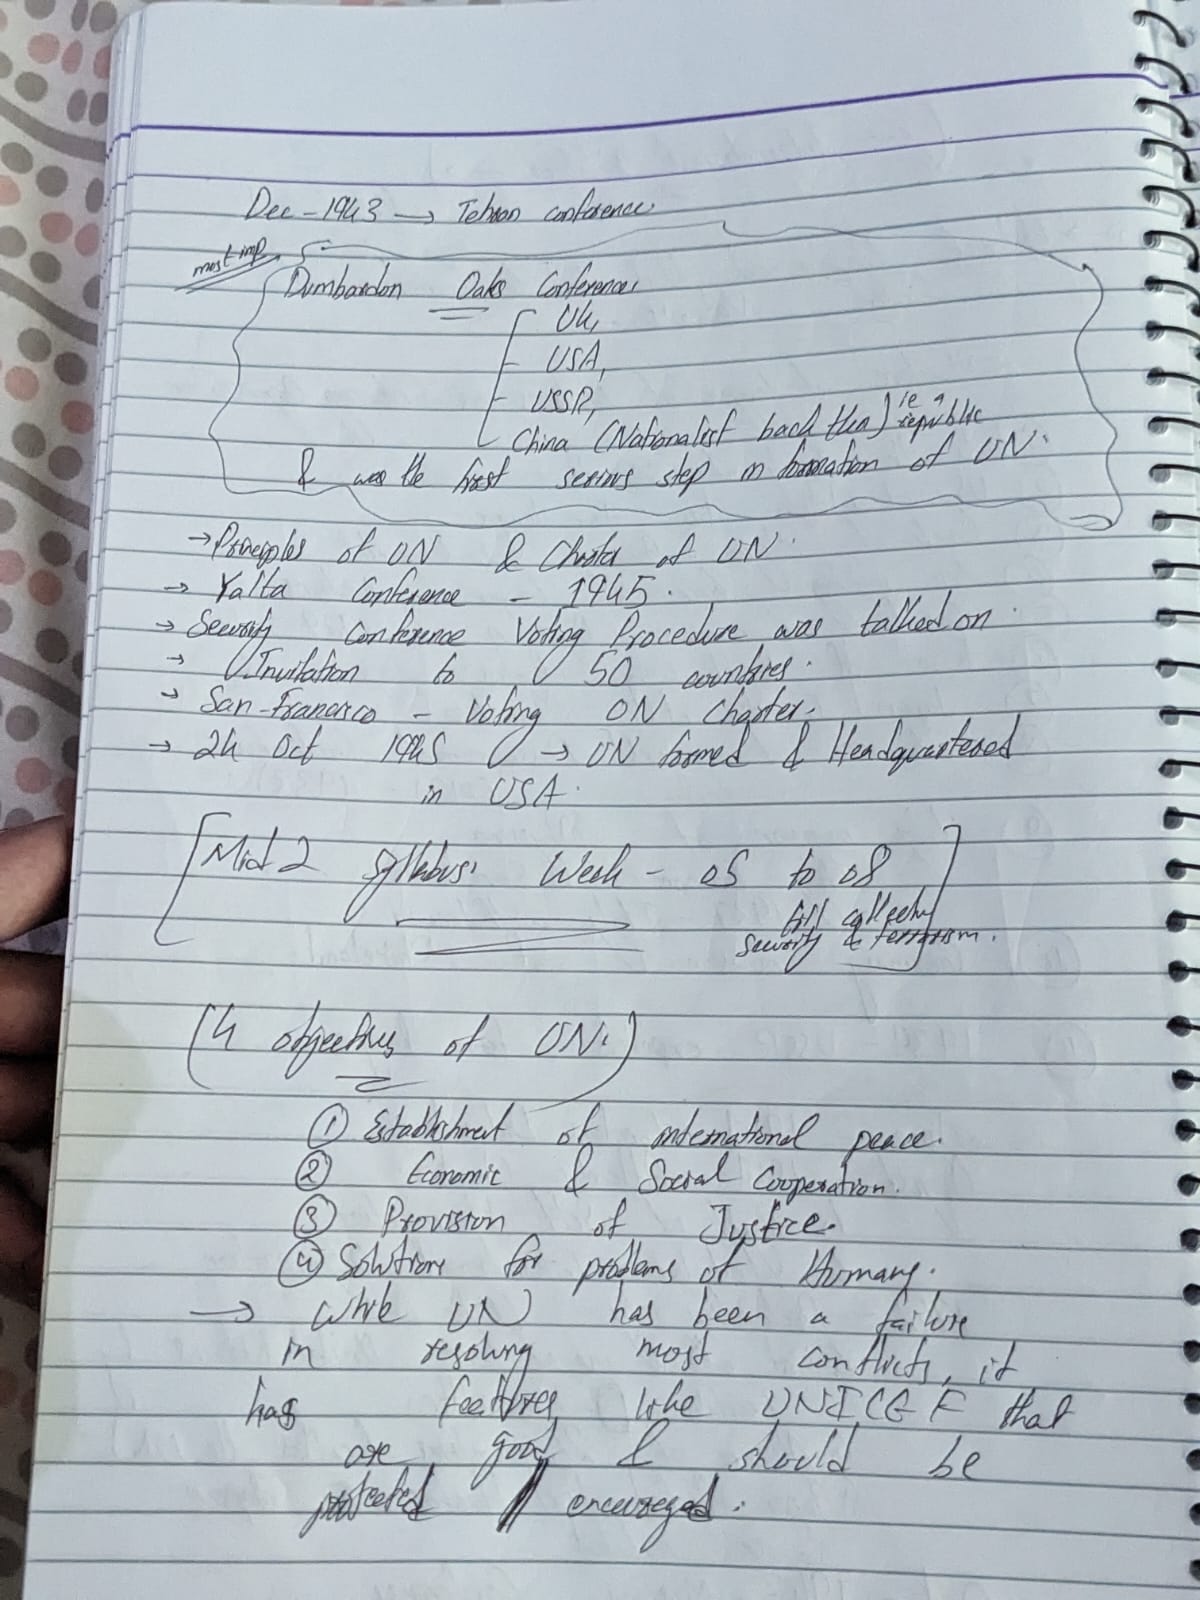 Dec - 1943 → Tehran conference.
most imp
Dumbardon Oaks Conference,
UK,
USA,
USSR,
China (Nationalist back then) ie a republic
& was the first serious step in formation of UN.
→ Principles of UN & Charter of UN.
→ Yalta Conference - 1945.
→ Security Conference Voting Procedure was talked on.
→ Invitation to 50 countries.
→ San-Francisco - Voting UN Charter.
→ 24 Oct 1945 → UN formed & Headquartered
in USA.
[Mid 2 Syllabus: Week - 05 to 08
till collective
security & terrorism.]
(4 objectives of UN.)
① Establishment of international peace.
② Economic & Social Cooperation.
③ Provision of Justice.
④ Solutions for problems of Humans.
→ While UN has been a failure
in resolving most conflicts, it
has features like UNICEF that
are good & should be
protected encouraged.